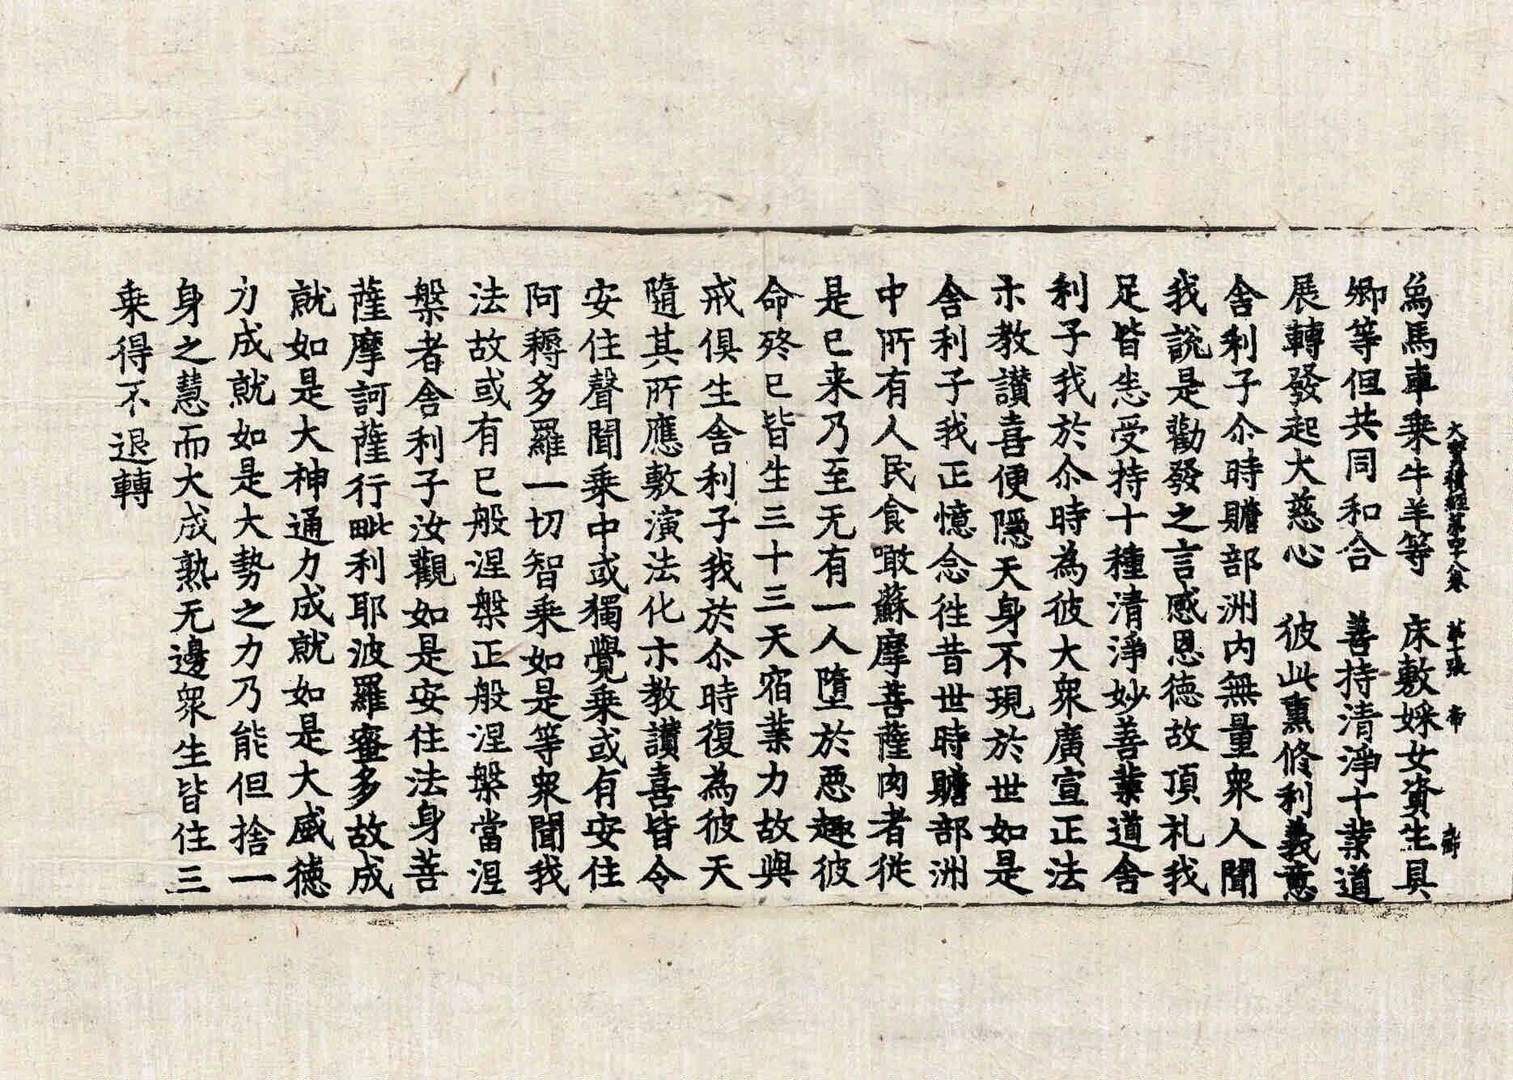 大寶積經第四十八卷 第十張 帝
象馬車乘牛羊等 床敷婇女資生具
卿等但共同和合 善持清淨十業道
展轉發起大慈心 彼此熏修利義意
舍利子尒時贍部洲內無量衆人聞
我說是勸發之言感恩德故頂礼我
足皆悉受持十種清淨妙善業道舍
利子我於尒時為彼大衆廣宣正法
示教讃喜便隱天身不現於世如是
舍利子我正憶念徃昔世時贍部洲
中所有人民食噉蘇摩菩薩肉者從
是已来乃至无有一人墮於惡趣彼
命終已皆生三十三天宿業力故與
戒俱生舍利子我於尒時復為彼天
隨其所應敷演法化示教讃喜皆令
安住聲聞乘中或獨覺乘或有安住
阿耨多羅一切智乘如是等衆聞我
法故或有已般涅槃正般涅槃當涅
槃者舍利子汝觀如是安住法身菩
薩摩訶薩行毗利耶波羅蜜多故成
就如是大神通力成就如是大威德
力成就如是大勢之力乃能但捨一
身之慧而大成熟无邊衆生皆住三
乘得不退轉